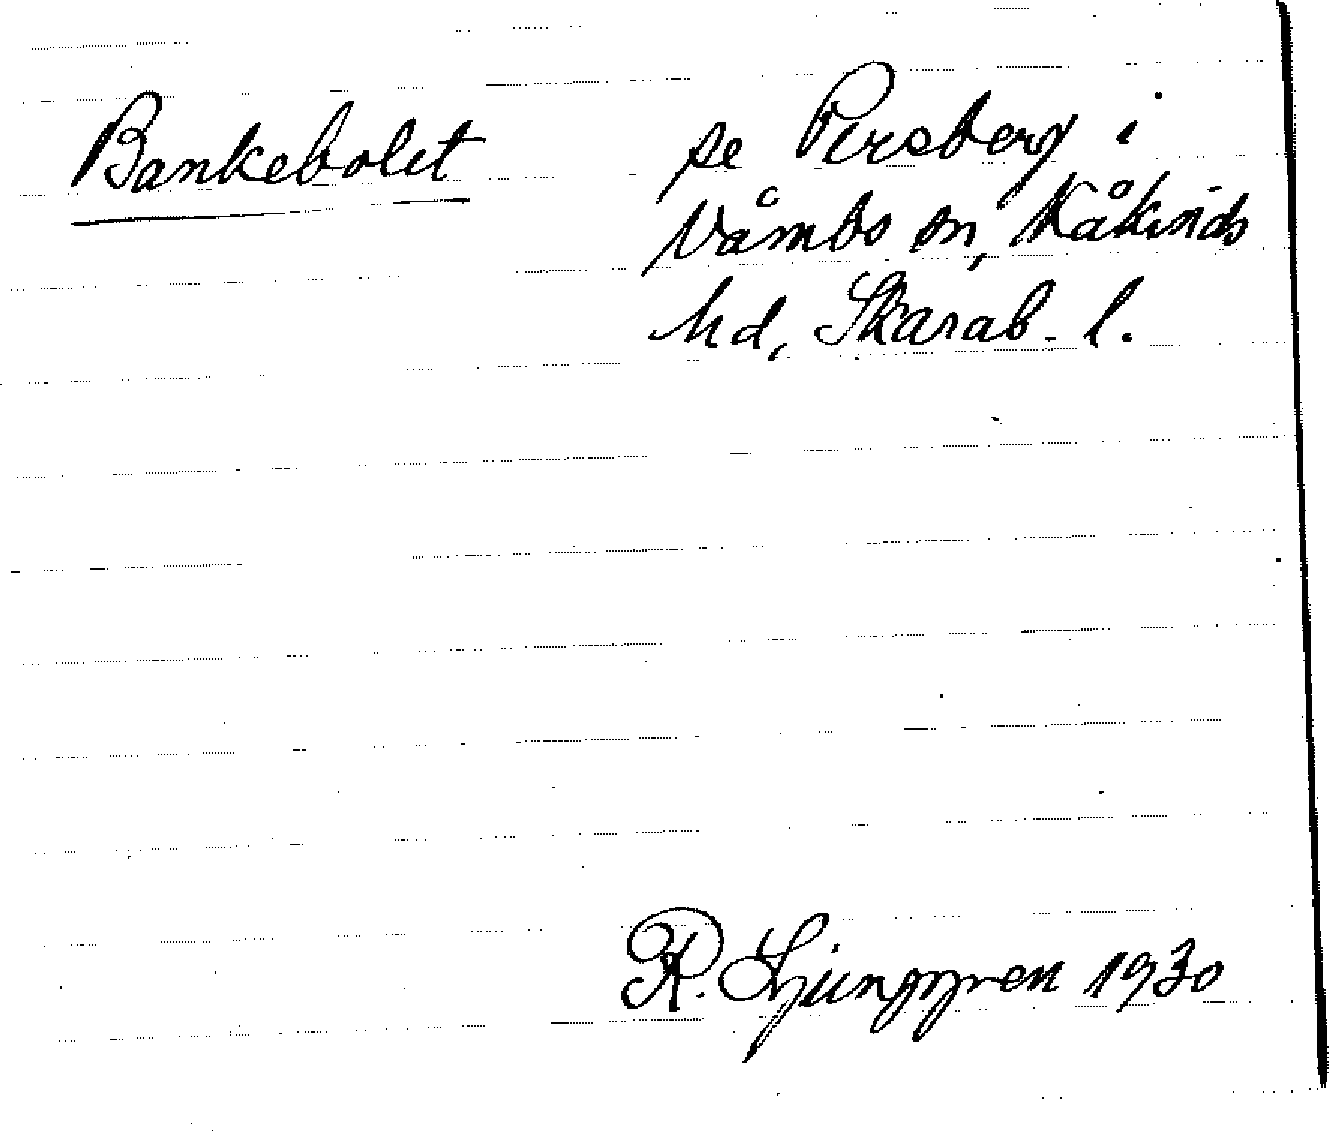 Bankebolet se Persberg i
Våmbs sn, Kåkinds
hd, Skarab. l.
R. Ljunggren 1930